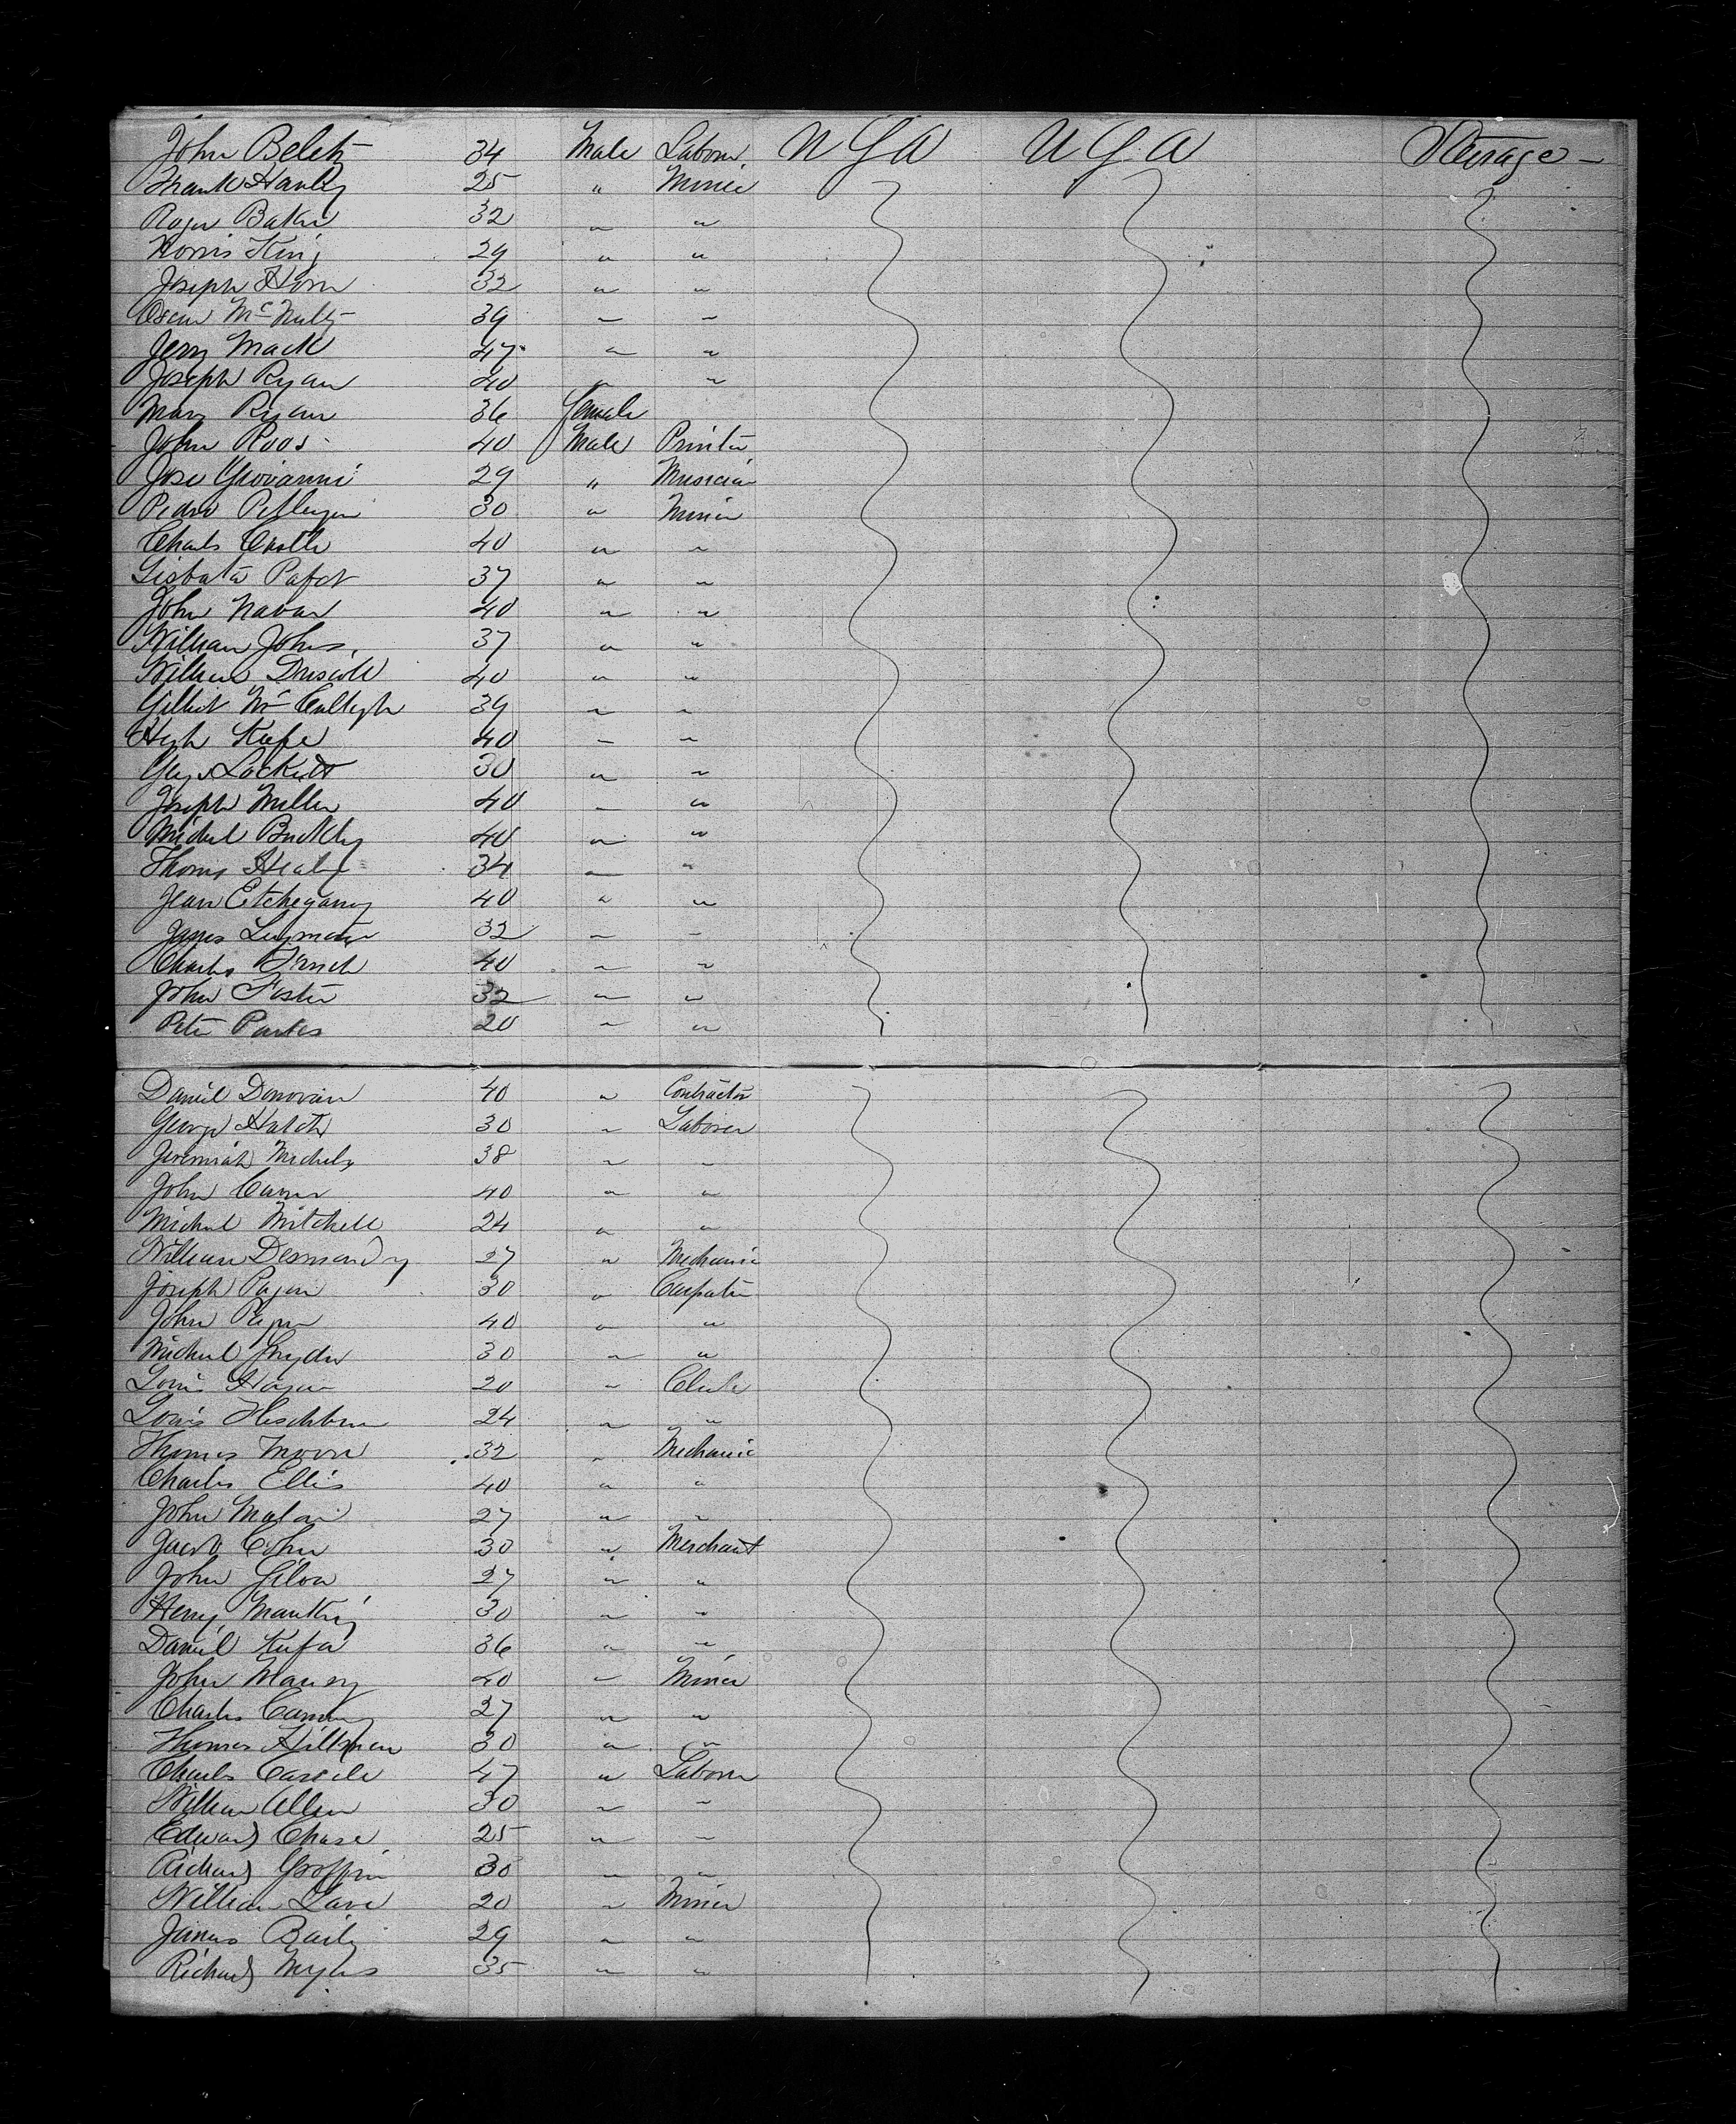 John Beletz 34 Male Laborer U S A U S A Steerage —
Frank Hanley 25 " Miner
Roger Baker 32 " "
Norris King 29 " "
Joseph Horn 32 " "
Oscar McNulty 39 " "
Jerry Mack 47 " "
Joseph Ryan 40 " "
Mary Ryan 36 female
John Roos 40 Male Printer
Jose Giovanni 29 " Musician
Pedro 30 " Miner
Charles 40 " "
37 " "
John Navar 40 " "
William Johns 37 " "
William Driscoll 40 " "
Gilbert McCullegh 39 " "
Hugh Kafe 40 " "
Lockett 30 " "
Joseph Miller 40 " "
Michel Buckley 40 " "
Thomas Healy 34 " "
Jean Etchegaray 40 " "
James 32 " "
Charles French 40 " "
John Foster 32 " "
Peter Parkes 20 " "
Daniel Donovan 40 " Contractor
George Hatch 30 " Laborer
Jeremiah 38 " "
John 40 " "
Michel Mitchell 24 " "
William Desmond 27 " Mechanic
Joseph 30 " Carpenter
John 40 " "
Michael Snyder 30 " "
Louis 20 " Clerk
Louis 24 " "
Thomas Moore 32 " Mechanic
Charles Ellis 40 " "
John 27 " "
Jacob Cohn 30 " Merchant
John 27 " "
Henry 30 " "
Daniel 36 " "
John 40 " Miner
Charles 27 " "
Thomas Hillman 30 " "
Charles 47 " Laborer
William Allen 30 " "
Edward Chase 25 " "
Richard Groffin 30 " "
William 20 " Miner
James Baily 29 " "
Richard Myers 35 " "